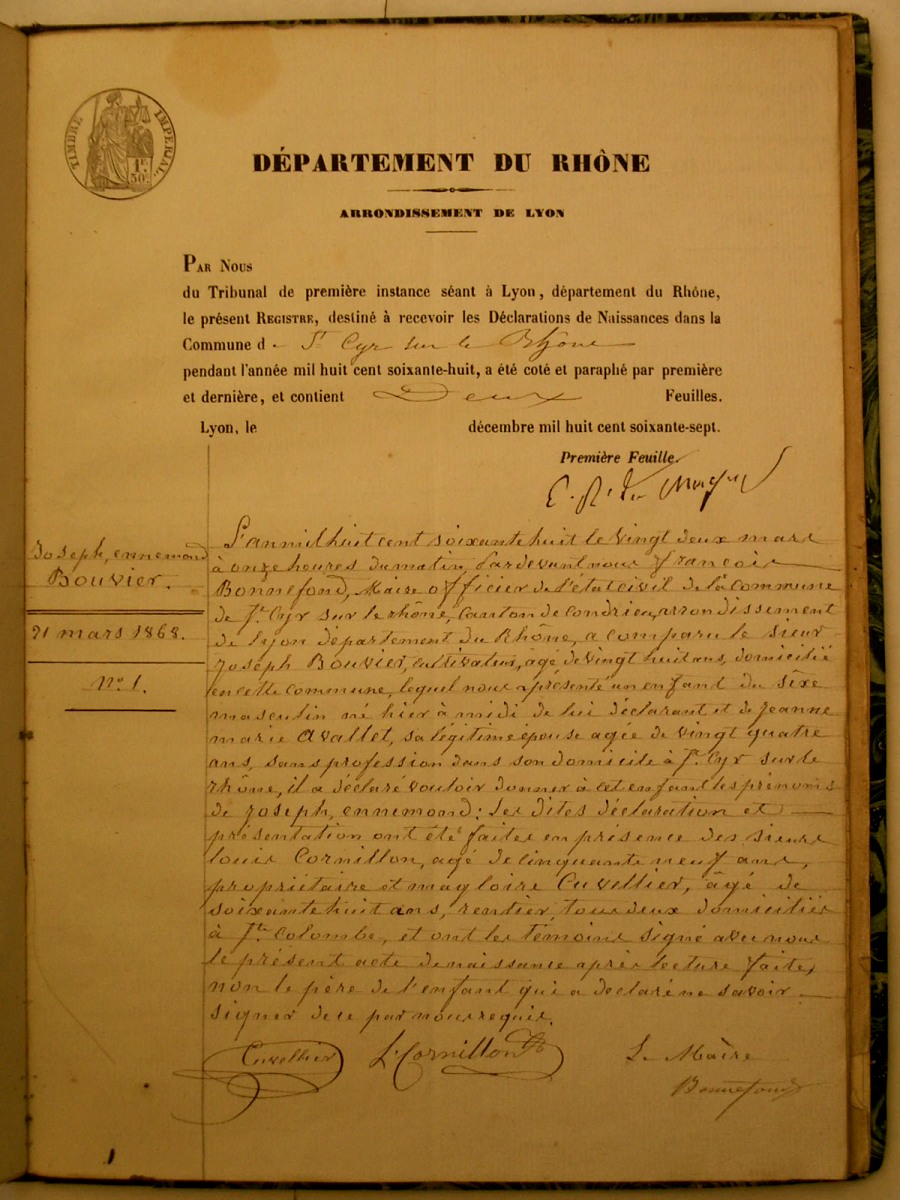 TIMBRE IMPERIAL
1F.
50c.
DÉPARTEMENT DU RHÔNE
ARRONDISSEMENT DE LYON
PAR NOUS
du Tribunal de première instance séant à Lyon, département du Rhône,
le présent REGISTRE, destiné à recevoir les Déclarations de Naissances dans la
Commune d e St Cyr sur le Rhône
pendant l'année mil huit cent soixante-huit, a été coté et paraphé par première
et dernière, et contient Deux Feuilles.
Lyon, le décembre mil huit cent soixante-sept.
Première Feuille.
Joseph, ennemond
Bouvier.
21 mars 1868.
No. 1.
L'an mil huit cent soixante huit le vingt deux mars
à onze heures du matin, Pardevant nous françois
Bonnefond, Maire officier de l'état civil de la commune
de St. Cyr sur le rhône, canton de condrieu, arrondissement
de lyon département du Rhône, a comparu le sieur
joseph Bouvier, cultivateur, agé de vingt huit ans, domicilié
en cette commune, lequel nous a présenté un enfant du sixe
masculin né hier à midi de lui déclarant et de jeanne
marie avallet, sa légitime épouse agée de vingt quatre
ans, sans profession dans son domicile à St. Cyr sur le
rhône, il a déclaré vouloir donner à cet enfant les prénoms
de joseph, ennemond: Les dites déclaration et
présentation ont été faites en présence des sieurs
louis Cornillon, agé de cinquante neuf ans,
propriétaire et magloire Cuvellier, âgé de
soixante huit ans, rentier, tous deux domiciliés
à Ste. Colombe, et ont les témoins signé avec nous
le présent acte de naissance après lecture faite,
non le père de l'enfant qui a déclaré ne savoir
signer de ce par nous requis.
Cuvellier L. Cornillon Le Maire
Bonnefond